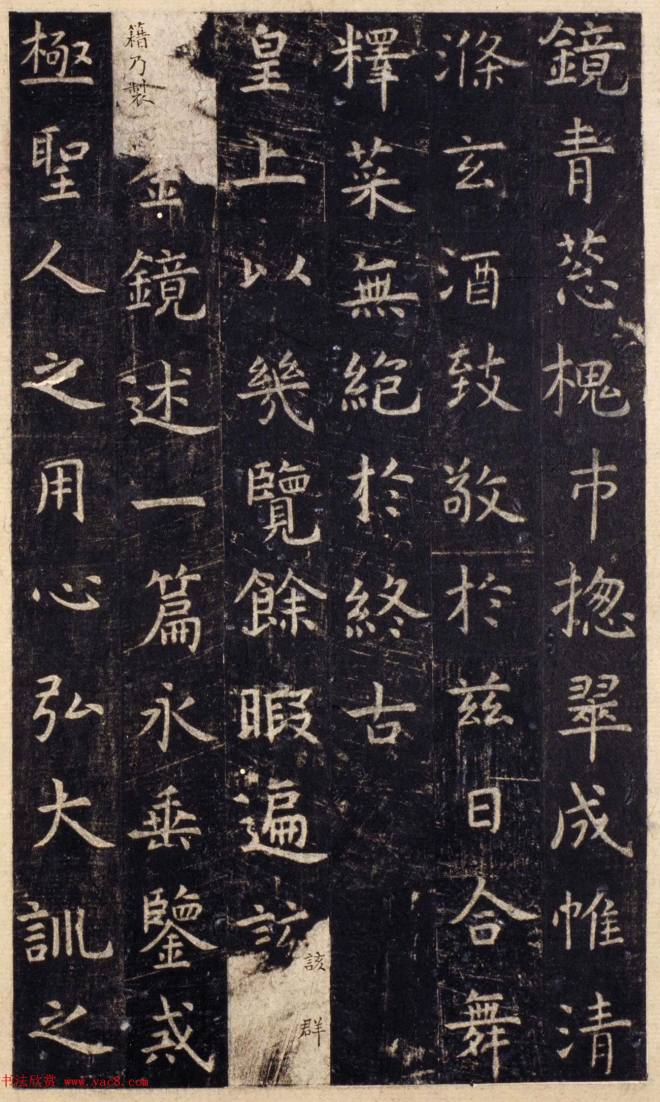 鏡青葱槐市揔翠成帷清
滌玄酒致敬於茲日合舞
釋菜無絶於終古
皇上以幾覽餘暇遍該群
籍乃製金鏡述一篇永垂鑒戒
極聖人之用心弘大訓之
书法欣赏 www.yac8.com